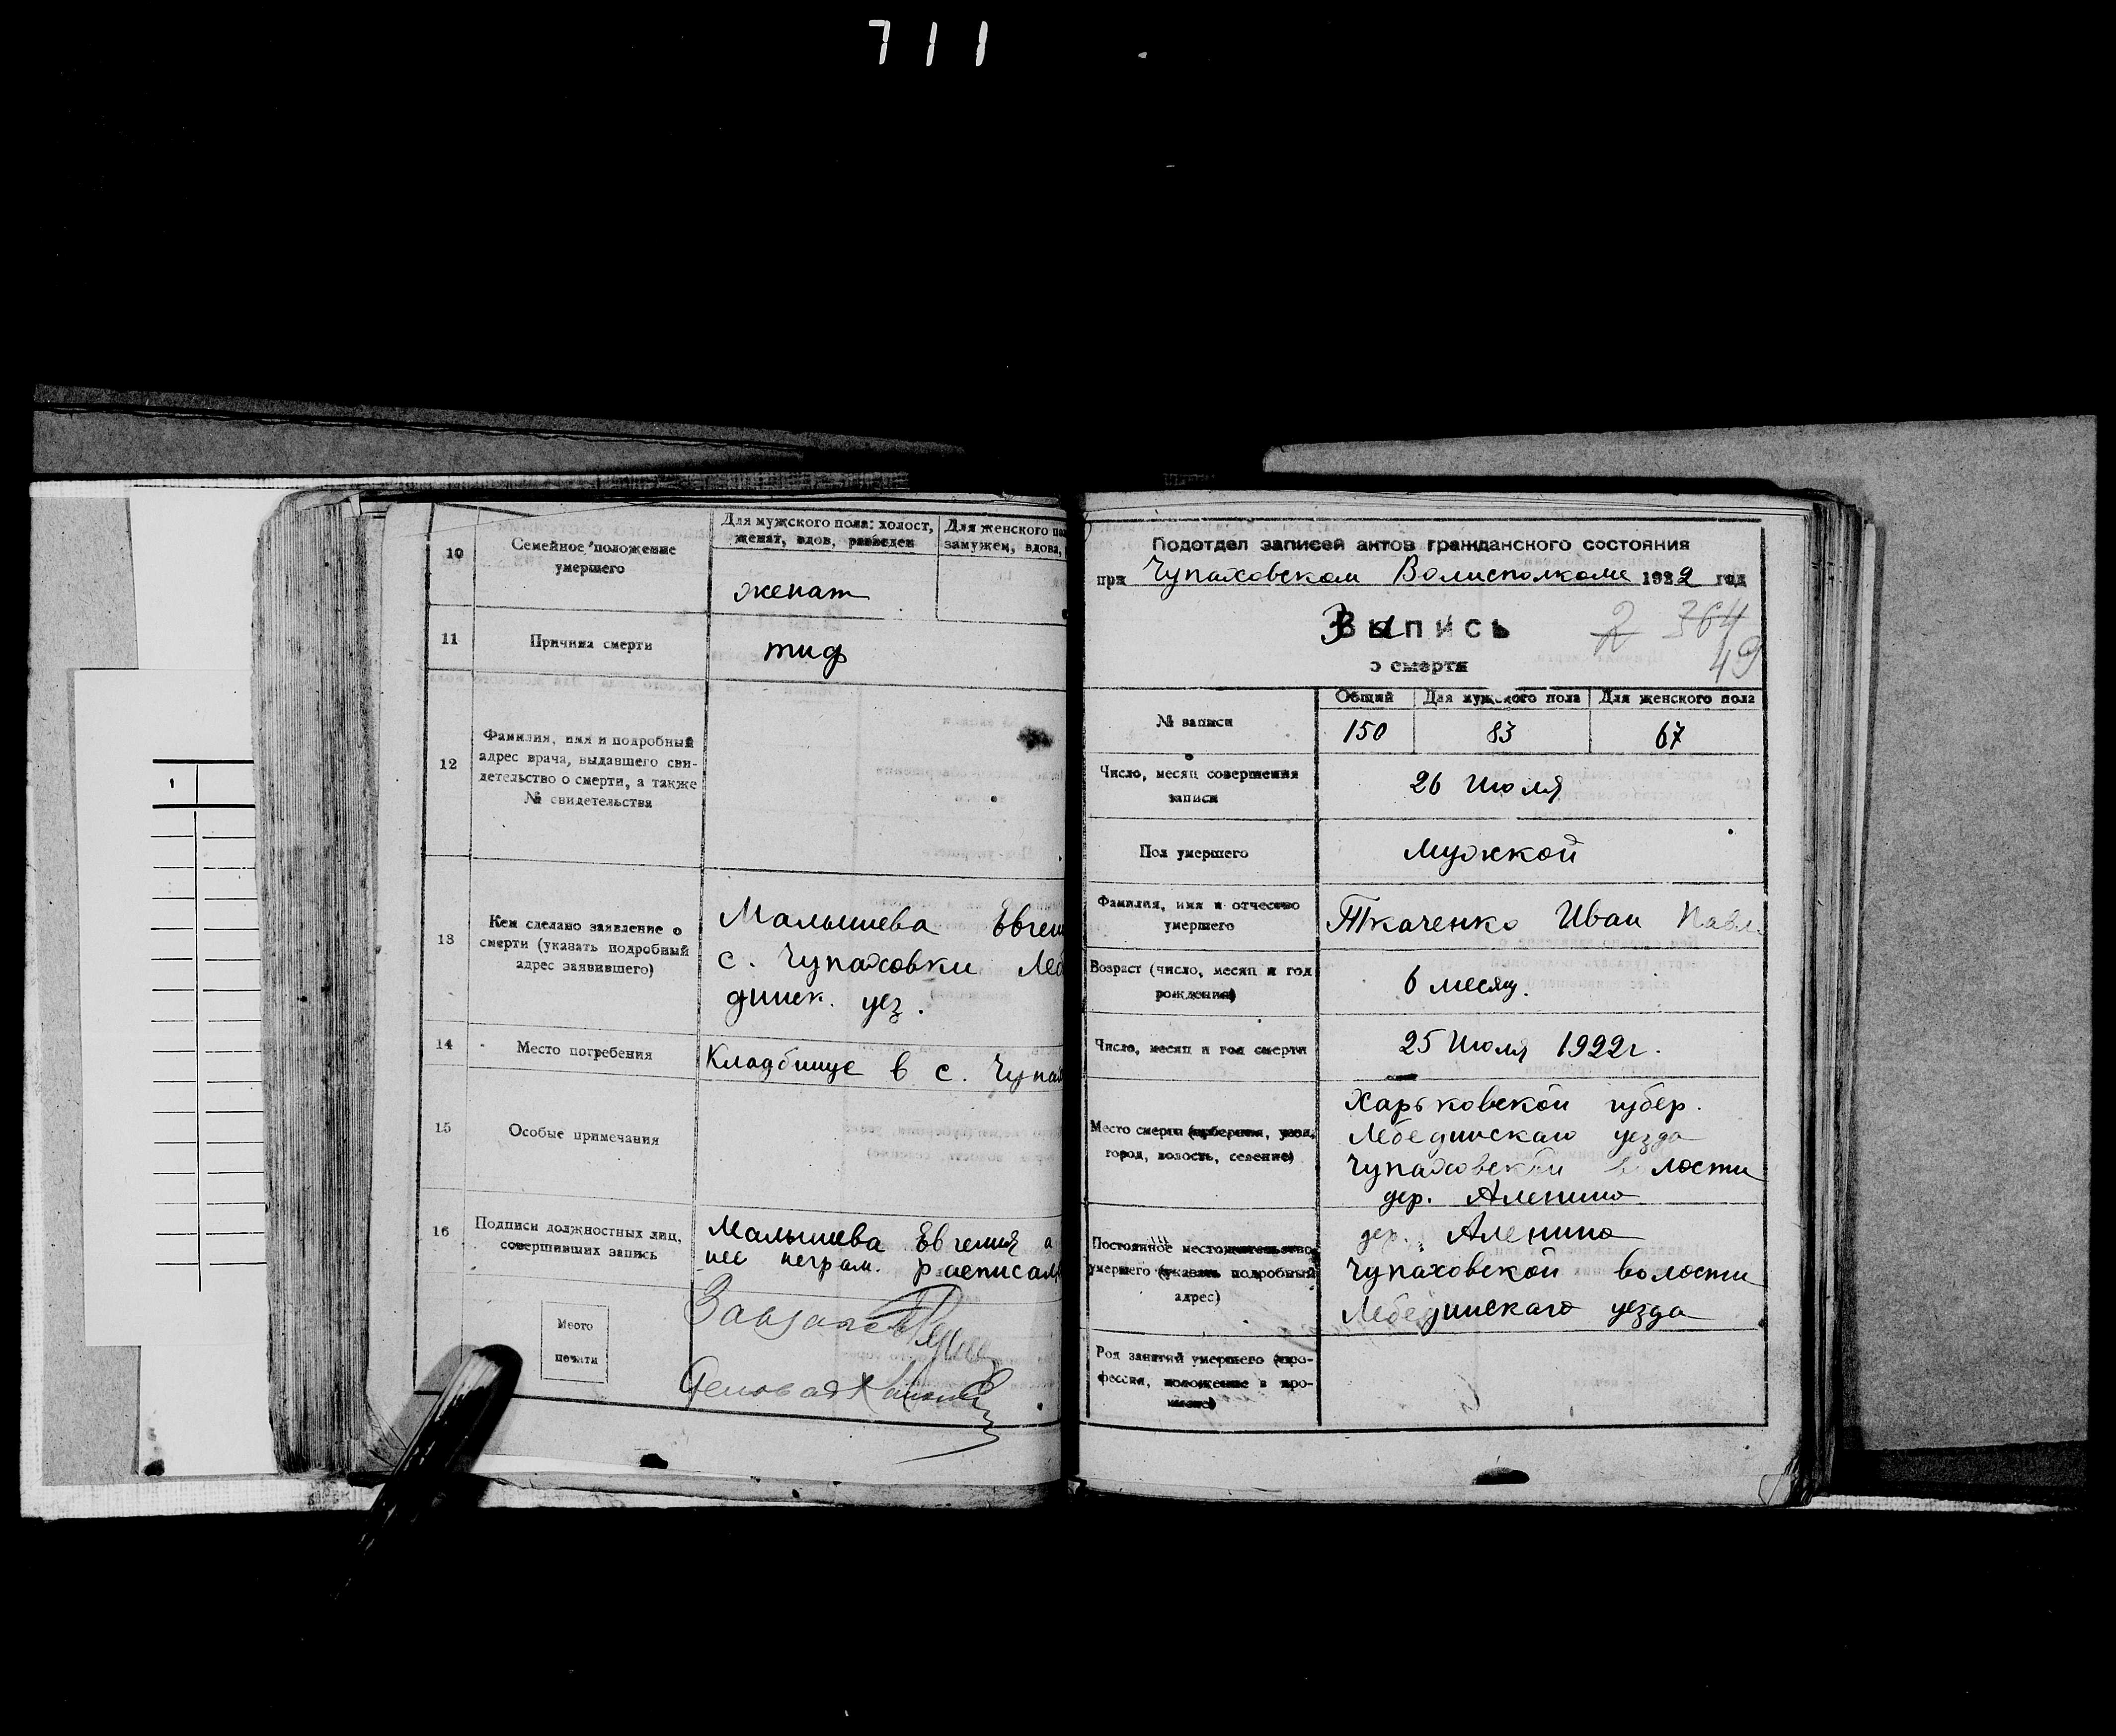 711
10
Семейное положение
умершего
Для мужского пола: холост,
женат, вдов, разведен
Для женского
замужем, вдова,
женат
11
Причина смерти
тиф
12
Фамилия, имя и подробный
адрес врача, выдавшего сви-
детельство о смерти, а также
№ свидетельства
13
Кем сделано заявление о
смерти (указать подробный
адрес заявившего)
Малышева Евген
с. Чупаховки Леб
динск. уез.
14
Место погребения
Кладбище в с. Чупах
15
Особые примечания
16
Подписи должностных лиц,
совершивших запись
Малышева Евгения а
нее неграм. расписал
Место
печати
1
Подотдел записей актов гражданского состояния
при Чупаховском Волисполкоме 1922 год
Запись
о смерти
2 364
49
№ записи
Общий
Для мужского пола
Для женского пола
150
83
67
Число, месяц совершения
записи
26 Июля
Пол умершего
Мужской
Фамилия, имя и отчество
умершего
Ткаченко Иван Павл.
Возраст (число, месяц и год
рождения)
6 месяц.
Число, месяц и год смерти
25 Июля 1922 г.
Место смерти (губерния, уезд,
город, волость, селение)
Харьковской губер.
Лебединскаго уезда
Чупаховской волости
дер. Аленино
Постоянное местожительство
умершего (указать подробный
адрес)
дер. Аленино
Чупаховской волости
Лебединскаго уезда
Род занятий умершего (про-
фессия, положение в про-
мысле)